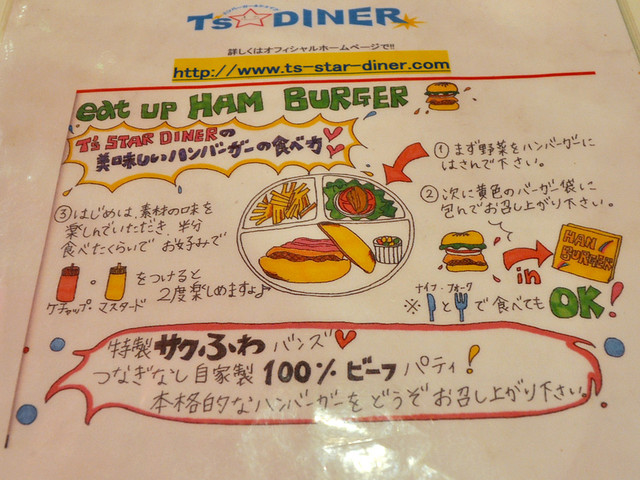 T's☆DINER
詳しくはオフィシャルホームページで!!
http://www.ts-star-diner.com
eat UP HAM BURGER
T's STAR DINERの
美味しいハンバーガーの食べ方
①まず野菜をハンバーガーに
はさんで下さい。
②次に黄色のバーガー袋に
包んでお召し上がり下さい。
HAN BURGER
in
※ナイフとフォークで食べてもOK!
③はじめは、素材の味を
楽しんでいただき、半分
食べたくらいで お好みで
ケチャップ・マスタード
をつけると
2度楽しめますよ♪
特製サクふわバンズ
つなぎなし自家製100%ビーフパティ!
本格的なハンバーガーをどうぞお召し上がり下さい。